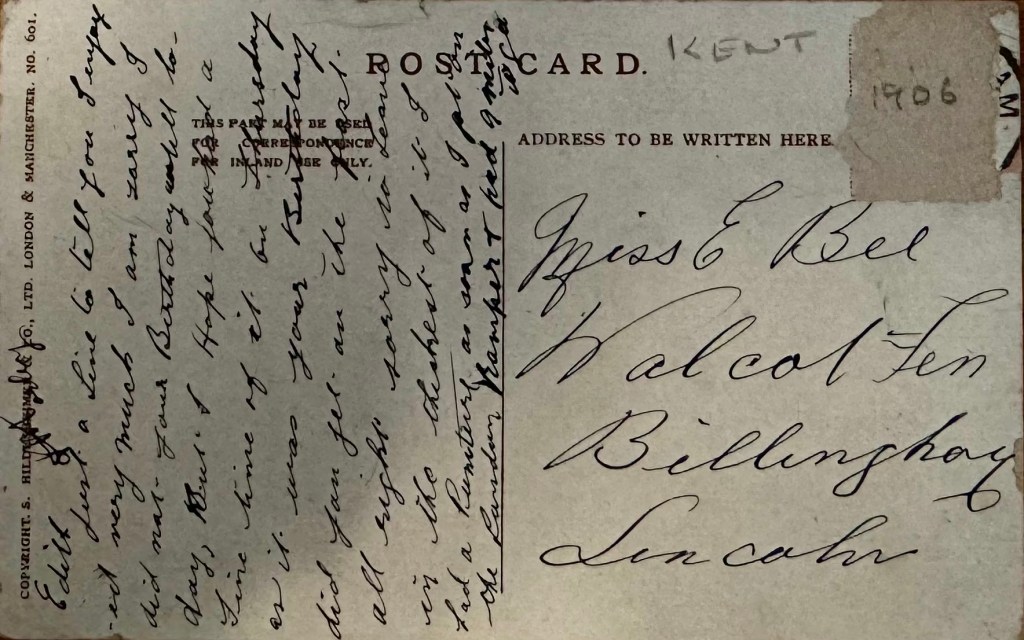 POST CARD.
KENT
1906
AM.
THIS PART MAY BE USED
FOR CORRESPONDENCE
FOR INLAND USE ONLY.
ADDRESS TO BE WRITTEN HERE
COPYRIGHT. S. HILDESHEIMER & CO., LTD. LONDON & MANCHESTER. NO. 601.
Edith
Just a Line to tell you I enjoy
-ed very much I am sorry I
did not your Birthday well to-
day, But I Hope you had a
Fine time of it on Thursday
as it was your Birthday
did you get on the
all right sorry to leave
in the of it I
had a Puncture as soon as I got on
the London Ramper & had 9 miles
to go
Miss E Bee
Walcot Fen
Billinghay
Lincoln